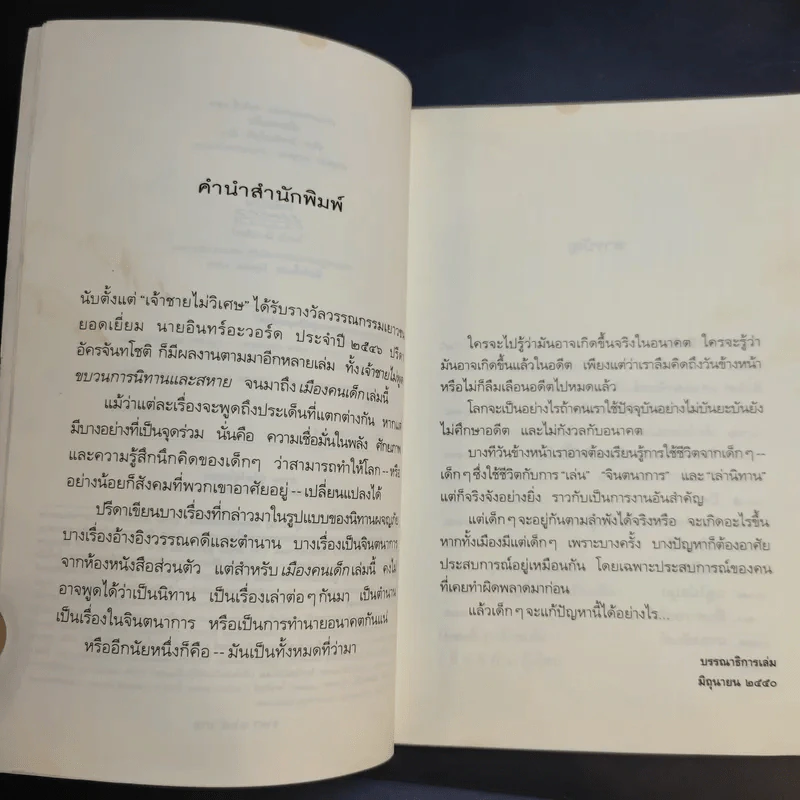 คำนำสำนักพิมพ์
นับตั้งแต่ “เจ้าชายไม่วิเศษ” ได้รับรางวัลวรรณกรรมเยาวชน
ยอดเยี่ยม นายอินทร์อะวอร์ด ประจำปี ๒๕๔๖ ปรีดา
อัครจันทโชติ ก็มีผลงานตามมาอีกหลายเล่ม ทั้งเจ้าชายไม่พูด
ขบวนการนิทานและสหาย จนมาถึง เมืองคนเด็ก เล่มนี้
แม้ว่าแต่ละเรื่องจะพูดถึงประเด็นที่แตกต่างกัน หากแต่
มีบางอย่างที่เป็นจุดร่วม นั่นคือ ความเชื่อมั่นในพลัง ศักยภาพ
และความรู้สึกนึกคิดของเด็กๆ ว่าสามารถทำให้โลก -- หรือ
อย่างน้อยก็สังคมที่พวกเขาอาศัยอยู่ -- เปลี่ยนแปลงได้
ปรีดาเขียนบางเรื่องที่กล่าวมาในรูปแบบของนิทานผจญภัย
บางเรื่องอ้างอิงวรรณคดีและตำนาน บางเรื่องเป็นจินตนาการ
จากห้องหนังสือส่วนตัว แต่สำหรับ เมืองคนเด็ก เล่มนี้ คงไม่
อาจพูดได้ว่าเป็นนิทาน เป็นเรื่องเล่าต่อๆ กันมา เป็นตำนาน
เป็นเรื่องในจินตนาการ หรือเป็นการทำนายอนาคตกันแน่
หรืออีกนัยหนึ่งก็คือ -- มันเป็นทั้งหมดที่ว่ามา
ใครจะไปรู้ว่ามันอาจเกิดขึ้นจริงในอนาคต ใครจะรู้ว่า
มันอาจเกิดขึ้นแล้วในอดีต เพียงแต่ว่าเราลืมคิดถึงวันข้างหน้า
หรือไม่ก็ลืมเลือนอดีตไปหมดแล้ว
โลกจะเป็นอย่างไรถ้าคนเราใช้ปัจจุบันอย่างไม่บันยะบันยัง
ไม่ศึกษาอดีต และไม่กังวลกับอนาคต
บางทีวันข้างหน้าเราอาจต้องเรียนรู้การใช้ชีวิตจากเด็กๆ --
เด็กๆ ซึ่งใช้ชีวิตกับการ “เล่น” “จินตนาการ” และ “เล่านิทาน”
แต่ก็จริงจังอย่างยิ่ง ราวกับเป็นการงานอันสำคัญ
แต่เด็กๆ จะอยู่กันตามลำพังได้จริงหรือ จะเกิดอะไรขึ้น
หากทั้งเมืองมีแต่เด็กๆ เพราะบางครั้ง บางปัญหาก็ต้องอาศัย
ประสบการณ์อยู่เหมือนกัน โดยเฉพาะประสบการณ์ของคน
ที่เคยทำผิดพลาดมาก่อน
แล้วเด็กๆ จะแก้ปัญหานี้ได้อย่างไร...
บรรณาธิการเล่ม
มิถุนายน ๒๕๕๐